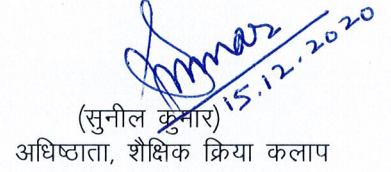 15.12.2020
(सुनील कुमार)
अधिष्ठाता, शैक्षिक क्रिया कलाप